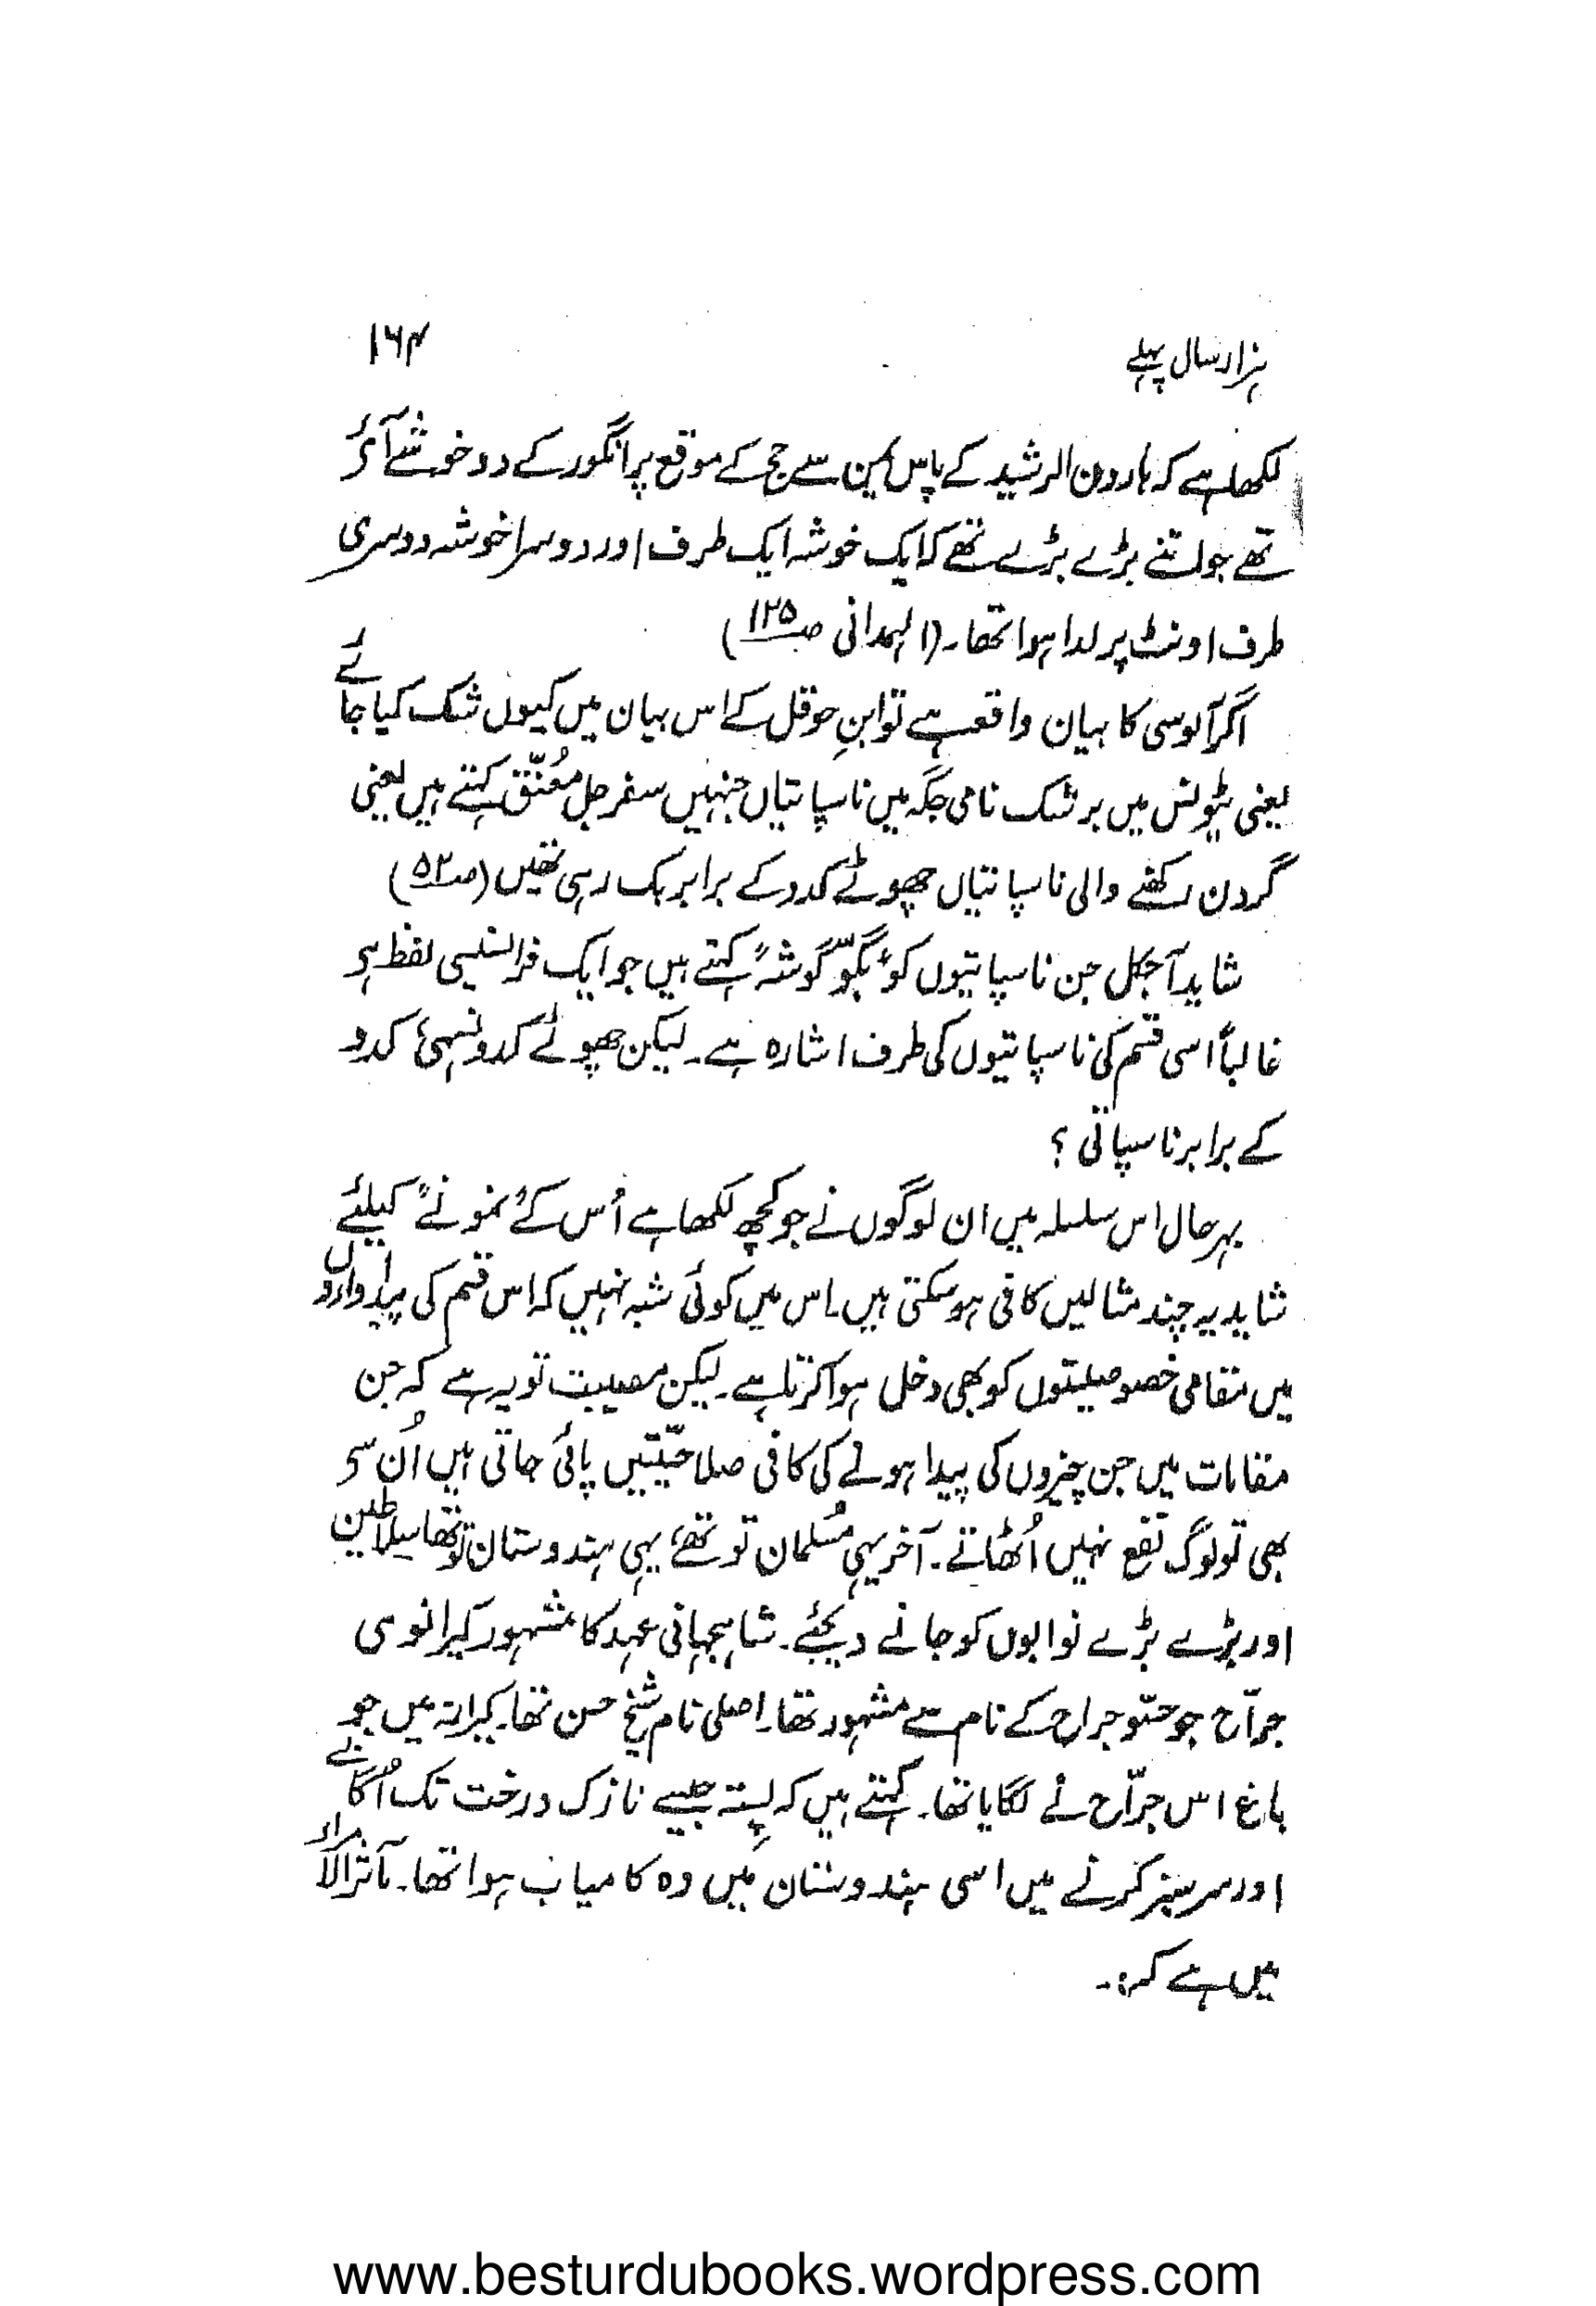 ہزار سال پہلے
۱۶۴
لکھا ہے کہ ہارون الرشید کے پاس یمن سے حج کے موقع پر انگور کے دو خوشے آئے
تھے جو اتنے بڑے بڑے تھے کہ ایک خوشہ ایک طرف اور دوسرا خوشہ دوسری
طرف اونٹ پر لدا ہوا تھا۔ (الہمدانی صـ ۱۲۵)
اگر آلوسی کا بیان واقعہ ہے تو ابنِ حوقل کے اس بیان میں کیوں شک کیا جائے
یعنی ٹیونس میں برشک نامی جگہ میں ناسپاتیاں جنہیں سفرجل معُنّق کہتے ہیں یعنی
گردن رکھنے والی ناسپاتیاں چھوٹے کدو کے برابر بک رہی تھیں (صـ ۵۲)
شاید آجکل جن ناسپاتیوں کو "بگوّ گوشہ" کہتے ہیں جو ایک فرانسیسی لفظ ہے
غالباً اسی قسم کی ناسپاتیوں کی طرف اشارہ ہے۔ لیکن چھوٹے کدو نسہی کدو
کے برابر ناسپاتی ؟
بہرحال اس سلسلہ میں ان لوگوں نے جو کچھ لکھا ہے اُس کے "نمونے" کیلئے
شاید یہ چند مثالیں کافی ہو سکتی ہیں۔ اس میں کوئی شبہ نہیں کہ اس قسم کی پیداواروں
میں مقامی خصوصیتوں کو بھی دخل ہوا کرتا ہے۔ لیکن مصیبت تو یہ ہے کہ جن
مقامات میں جن چیزوں کی پیدا ہونے کی کافی صلاحیّتیں پائی جاتی ہیں اُن سے
بھی تو لوگ نفع نہیں اُٹھاتے۔ آخر یہی مُسلمان تو تھے، یہی ہندوستان تو تھا سلاطین
اور بڑے بڑے نوابوں کو جانے دیجئے۔ شاہجہانی عہد کا مشہور کیرانوی
جرّاح جو حسّو جراح کے نام سے مشہور تھا۔ اصلی نام شیخ حسن تھا۔ کیرانہ میں جو
باغ اس جرّاح نے لگایا تھا۔ کہتے ہیں کہ پِستہ جیسے نازک درخت تک اُگانے
اور سرسبز کرنے میں اسی ہندوستان میں وہ کامیاب ہوا تھا۔ مآثر الامراء
میں ہے کہ:۔
www.besturdubooks.wordpress.com